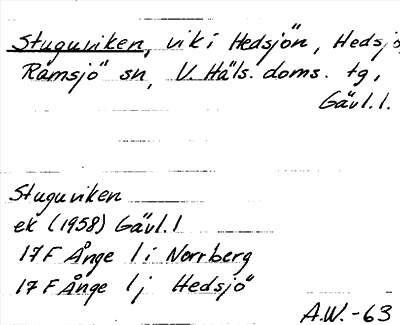 Stuguviken, vik i Hedsjön, Hedsjö,
Ramsjö sn, V. Häls. doms. tg,
Gävl. l.
Stuguviken
ek (1958) Gävl. l
17F Ånge 1i Norrberg
17F Ånge 1j Hedsjö
A.W.-63